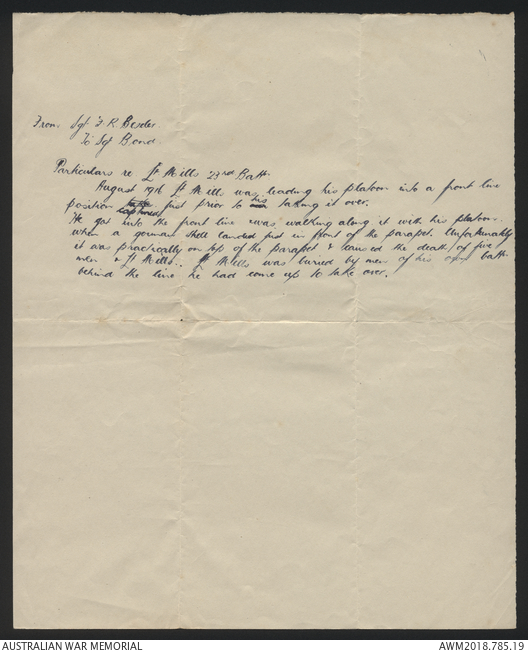 From Sgt F. R.
To Sgt Bond.
Particulars re Lt Mills 23rd Batt.
August 19th Lt Mills was leading his platoon into a front line
position just prior to his taking it over.
captured
He got into the front line & was walking along it with his platoon.
when a german shell landed just in front of the parapet. Unfortunately
it was practically on top of the parapet & caused the death of five
men & Lt Mills. Lt Mills was buried by men of his own batt
behind the line he had come up to take over.
AUSTRALIAN WAR MEMORIAL
AWM2018.785.19